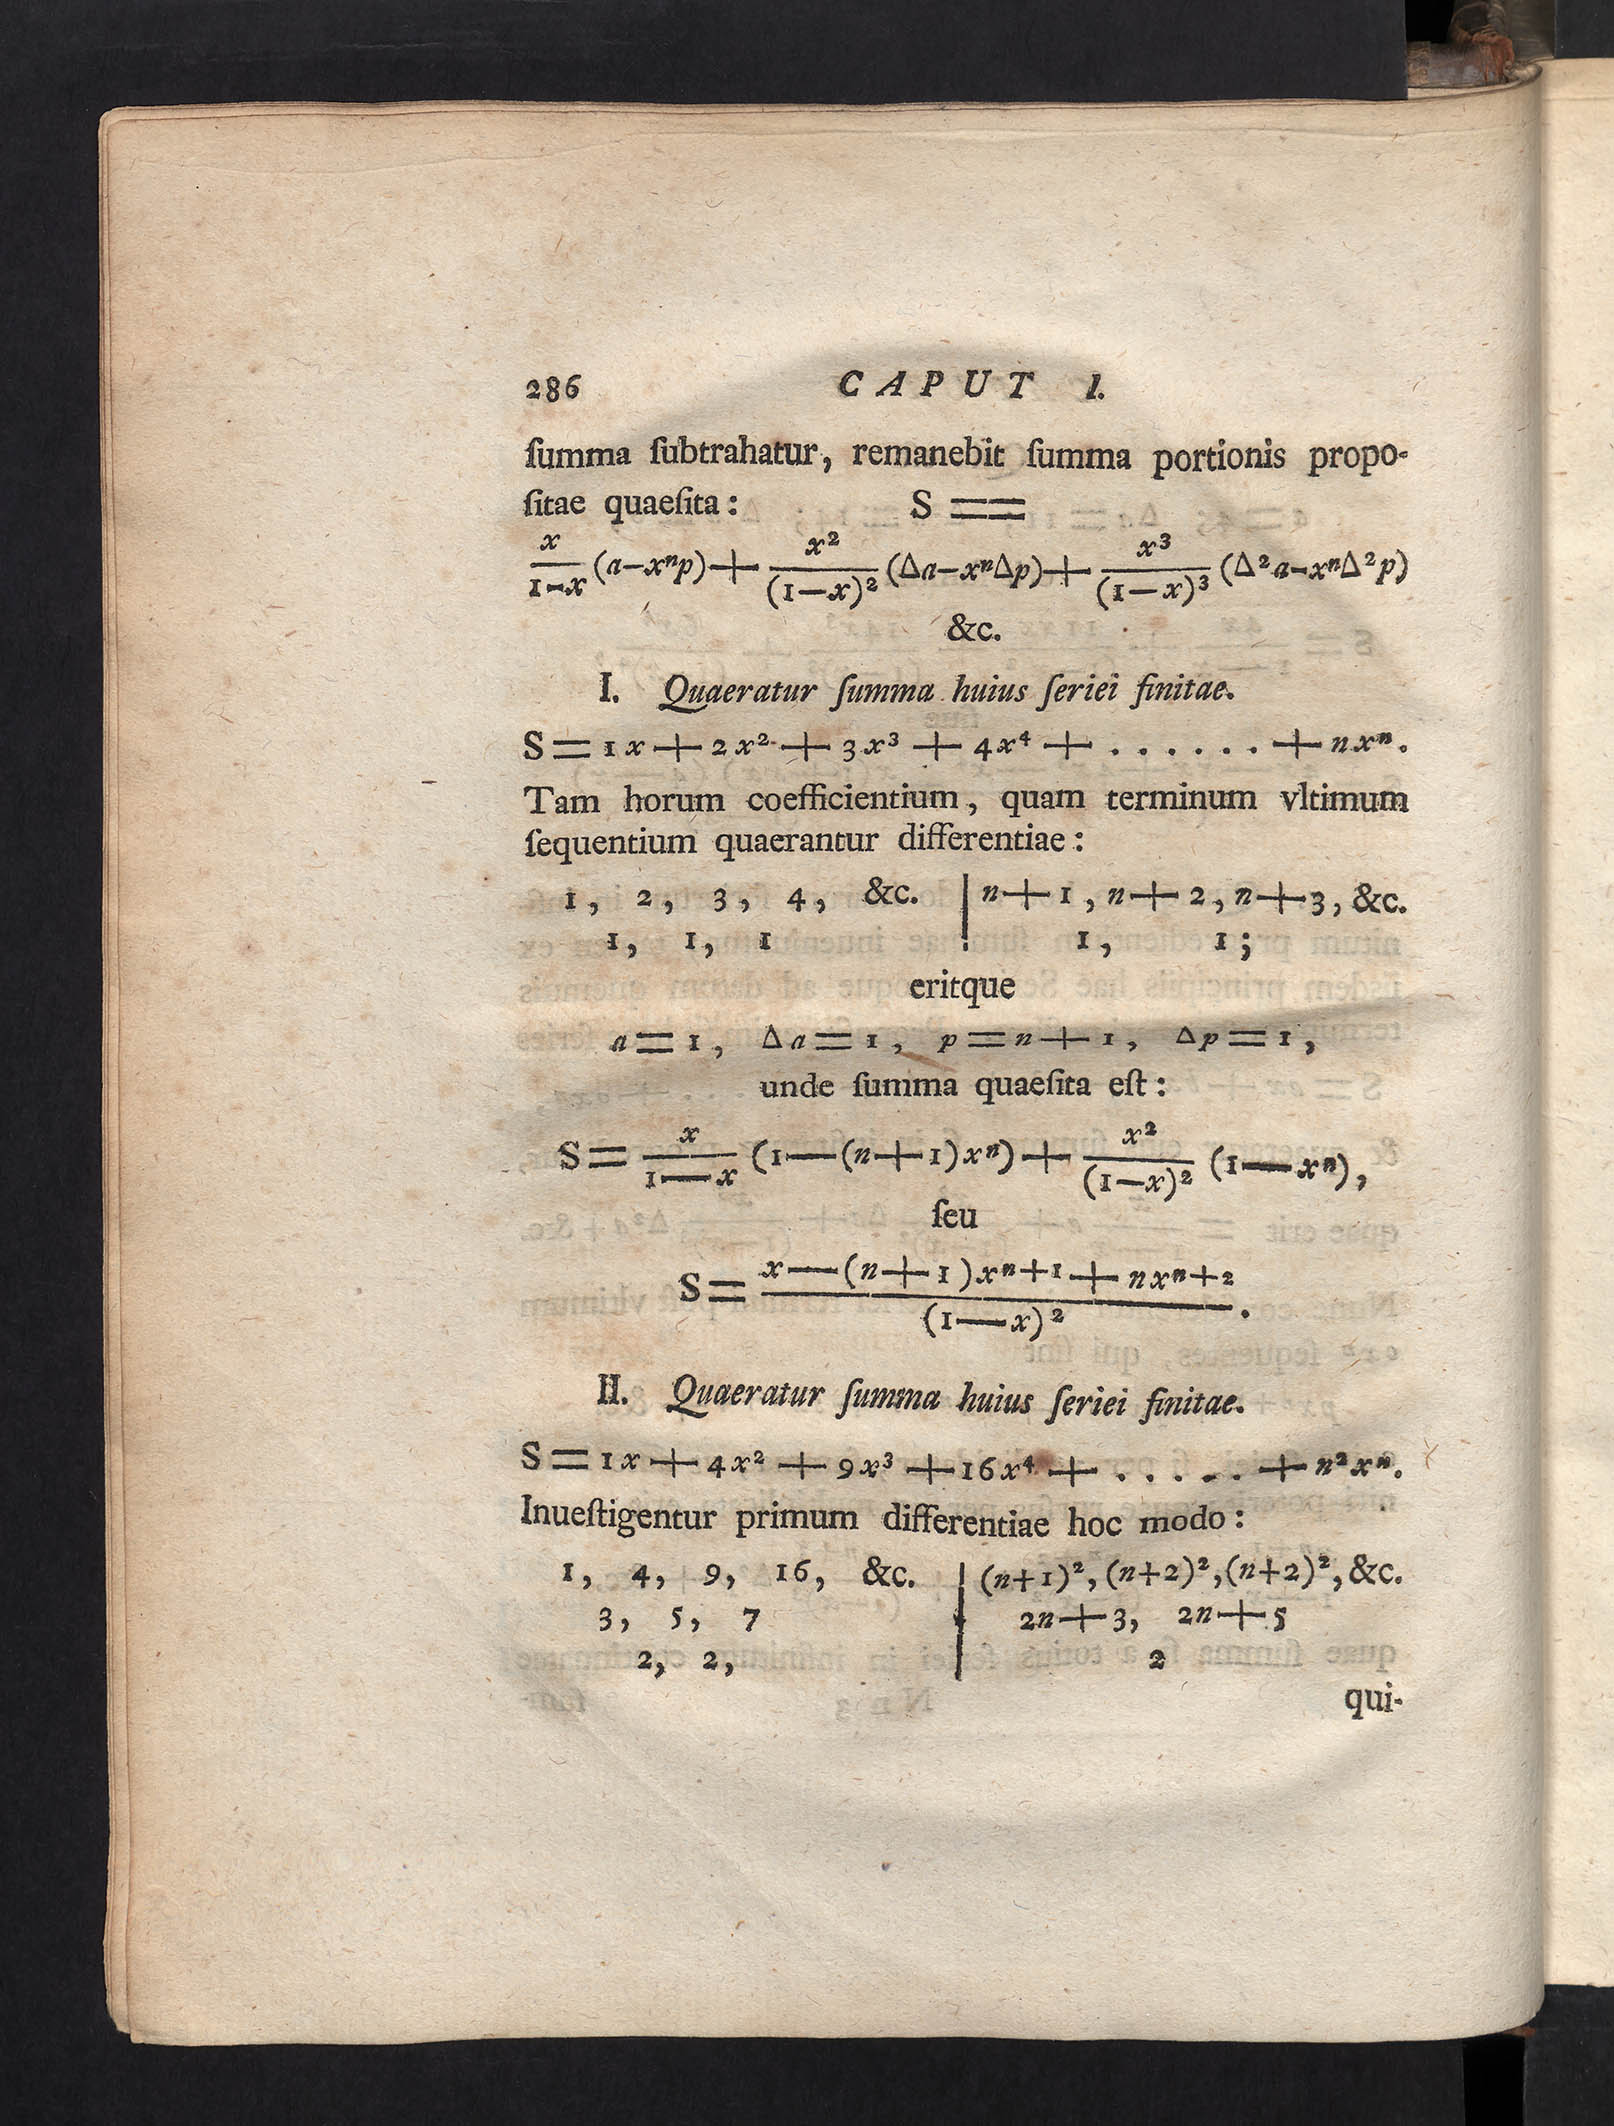 286 CAPUT I.
ſumma ſubtrahatur, remanebit ſumma portionis propo-
ſitae quaeſita: S ==
x/(1-x) (a-xⁿp) + x²/(1-x)² (Δa-xⁿΔp) + x³/(1-x)³ (Δ²a-xⁿΔ²p)
&c.
I. Quaeratur ſumma huius ſeriei finitae.
S = 1x + 2x² + 3x³ + 4x⁴ + . . . . . . + nxⁿ.
Tam horum coefficientium, quam terminum vltimum
ſequentium quaerantur differentiae:
1, 2, 3, 4, &c. | n+1, n+2, n+3, &c.
1, 1, 1 | 1, 1;
eritque
a = 1, Δa = 1, p = n + 1, Δp = 1,
unde ſumma quaeſita eſt:
S = x/(1-x) (1-(n+1)xⁿ) + x²/(1-x)² (1-xⁿ),
ſeu
S = (x-(n+1)xⁿ⁺¹ + nxⁿ⁺²)/(1-x)².
II. Quaeratur ſumma huius ſeriei finitae.
S = 1x + 4x² + 9x³ + 16x⁴ + . . . . . + n²xⁿ.
Inueſtigentur primum differentiae hoc modo:
1, 4, 9, 16, &c. | (n+1)², (n+2)², (n+2)², &c.
3, 5, 7 | 2n+3, 2n+5
2, 2, | 2
qui-